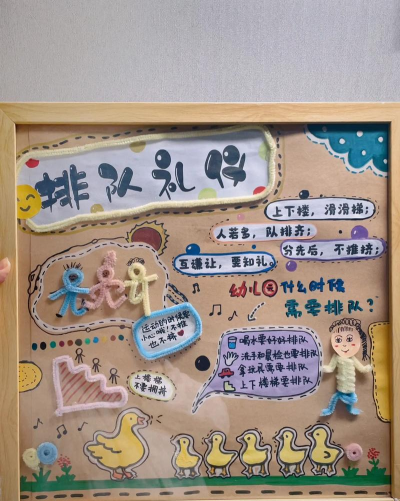 排队礼仪
上下楼，滑滑梯；
人若多，队排齐；
分先后，不推挤；
互谦让，要知礼。
幼儿园什么时候
需要排队？
运动的时候要
小心哦！不推
也不挤
喝水要好好排队
洗手和晨检也要排队
拿玩具需要排队
上下楼梯要排队
上楼梯
不要拥挤